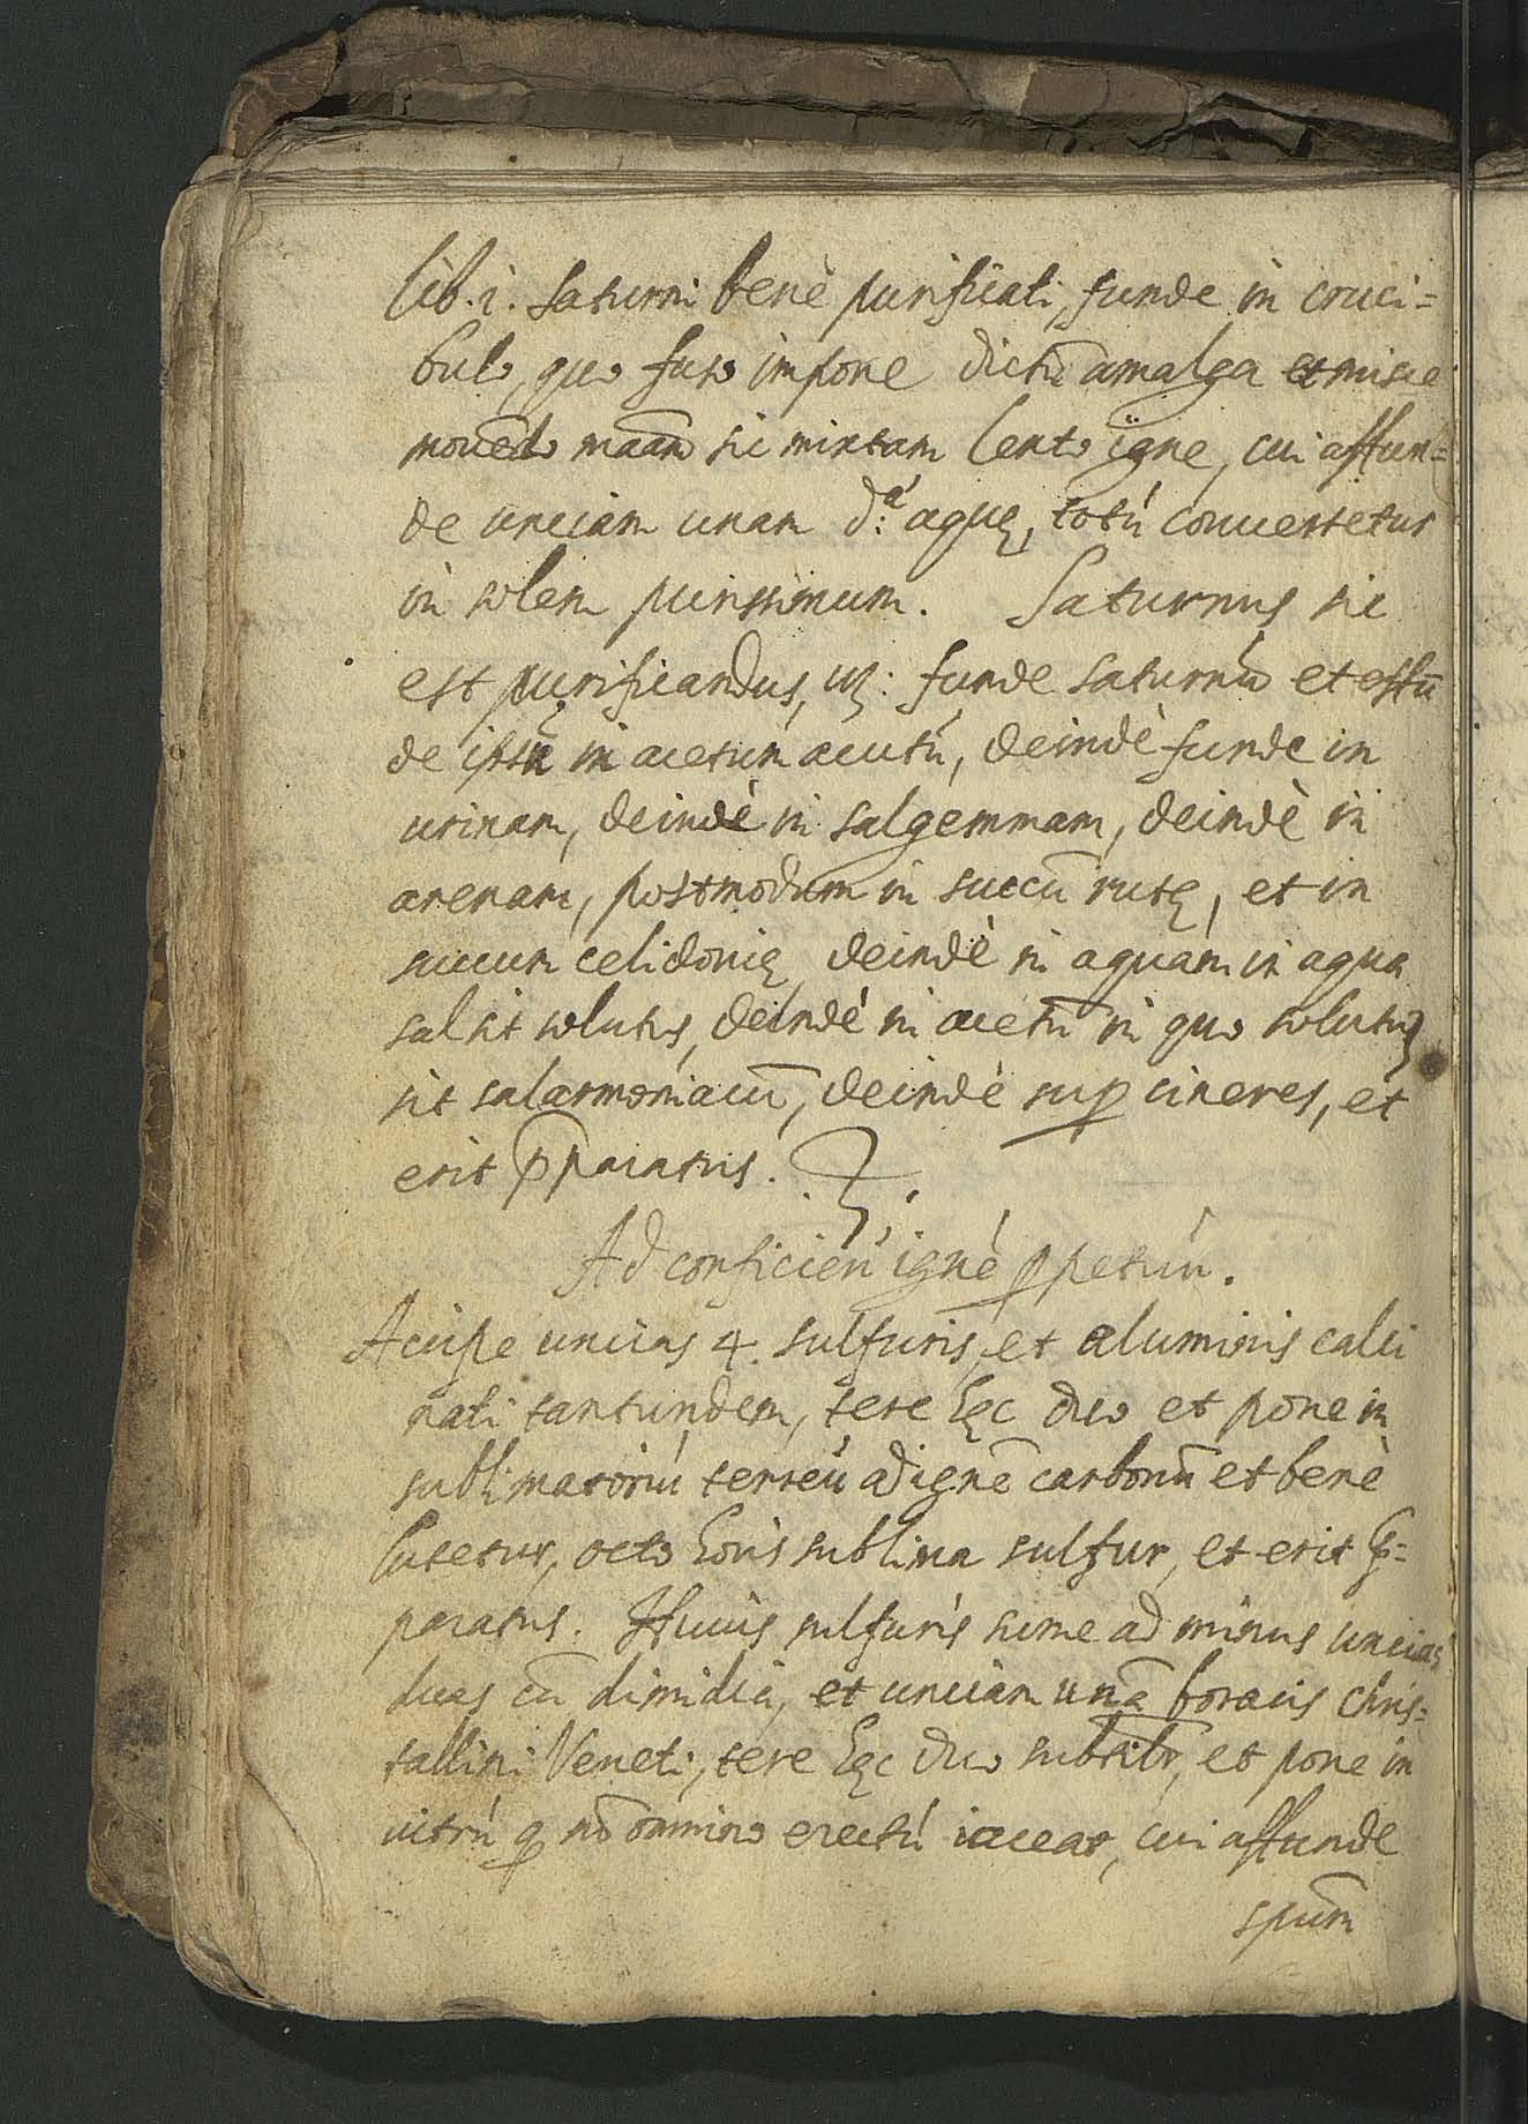 lib. i. Saturni benè purificati, funde in cruci=
bulo, quo fuso impone dictū amalga et misce
mouēdo maām sic mixtam lento igne, cui affun=
de unciam unam d.ᵃ aquę, totú conuertetur
in solem purissimum. Saturnus sic
est purificandus, uz: funde saturnū et effū
de ipsū in acetum acutú, deindè funde in
urinam, deindè in salgemmam, deindè in
arenam, postmodum in succū rutę, et in
succum celidonię deindè in aquam in aqua
sal sit solutus, deindè in acetū in quo solutus
sit salarmoniacū, deindè sup cineres, et
erit p̄paratus.
Ad conficien' ignè ppetuú.
Accipe uncias 4. sulfuris, et aluminis calci
nati tantundem, tere hęc duo et pone in
sublimatoriú terreú ad ignē carbonū et benè
lutetur, octo horis sublima sulfur, et erit p̄=
paratus. Huius sulfuris sume ad minus uncias
duas cū dimidia, et unciam unā boracis chris=
tallini Veneti, tere hęc duo subtilr, et pone in
uitrú q nō omnino erectú iaceat, cui affunde
spūm